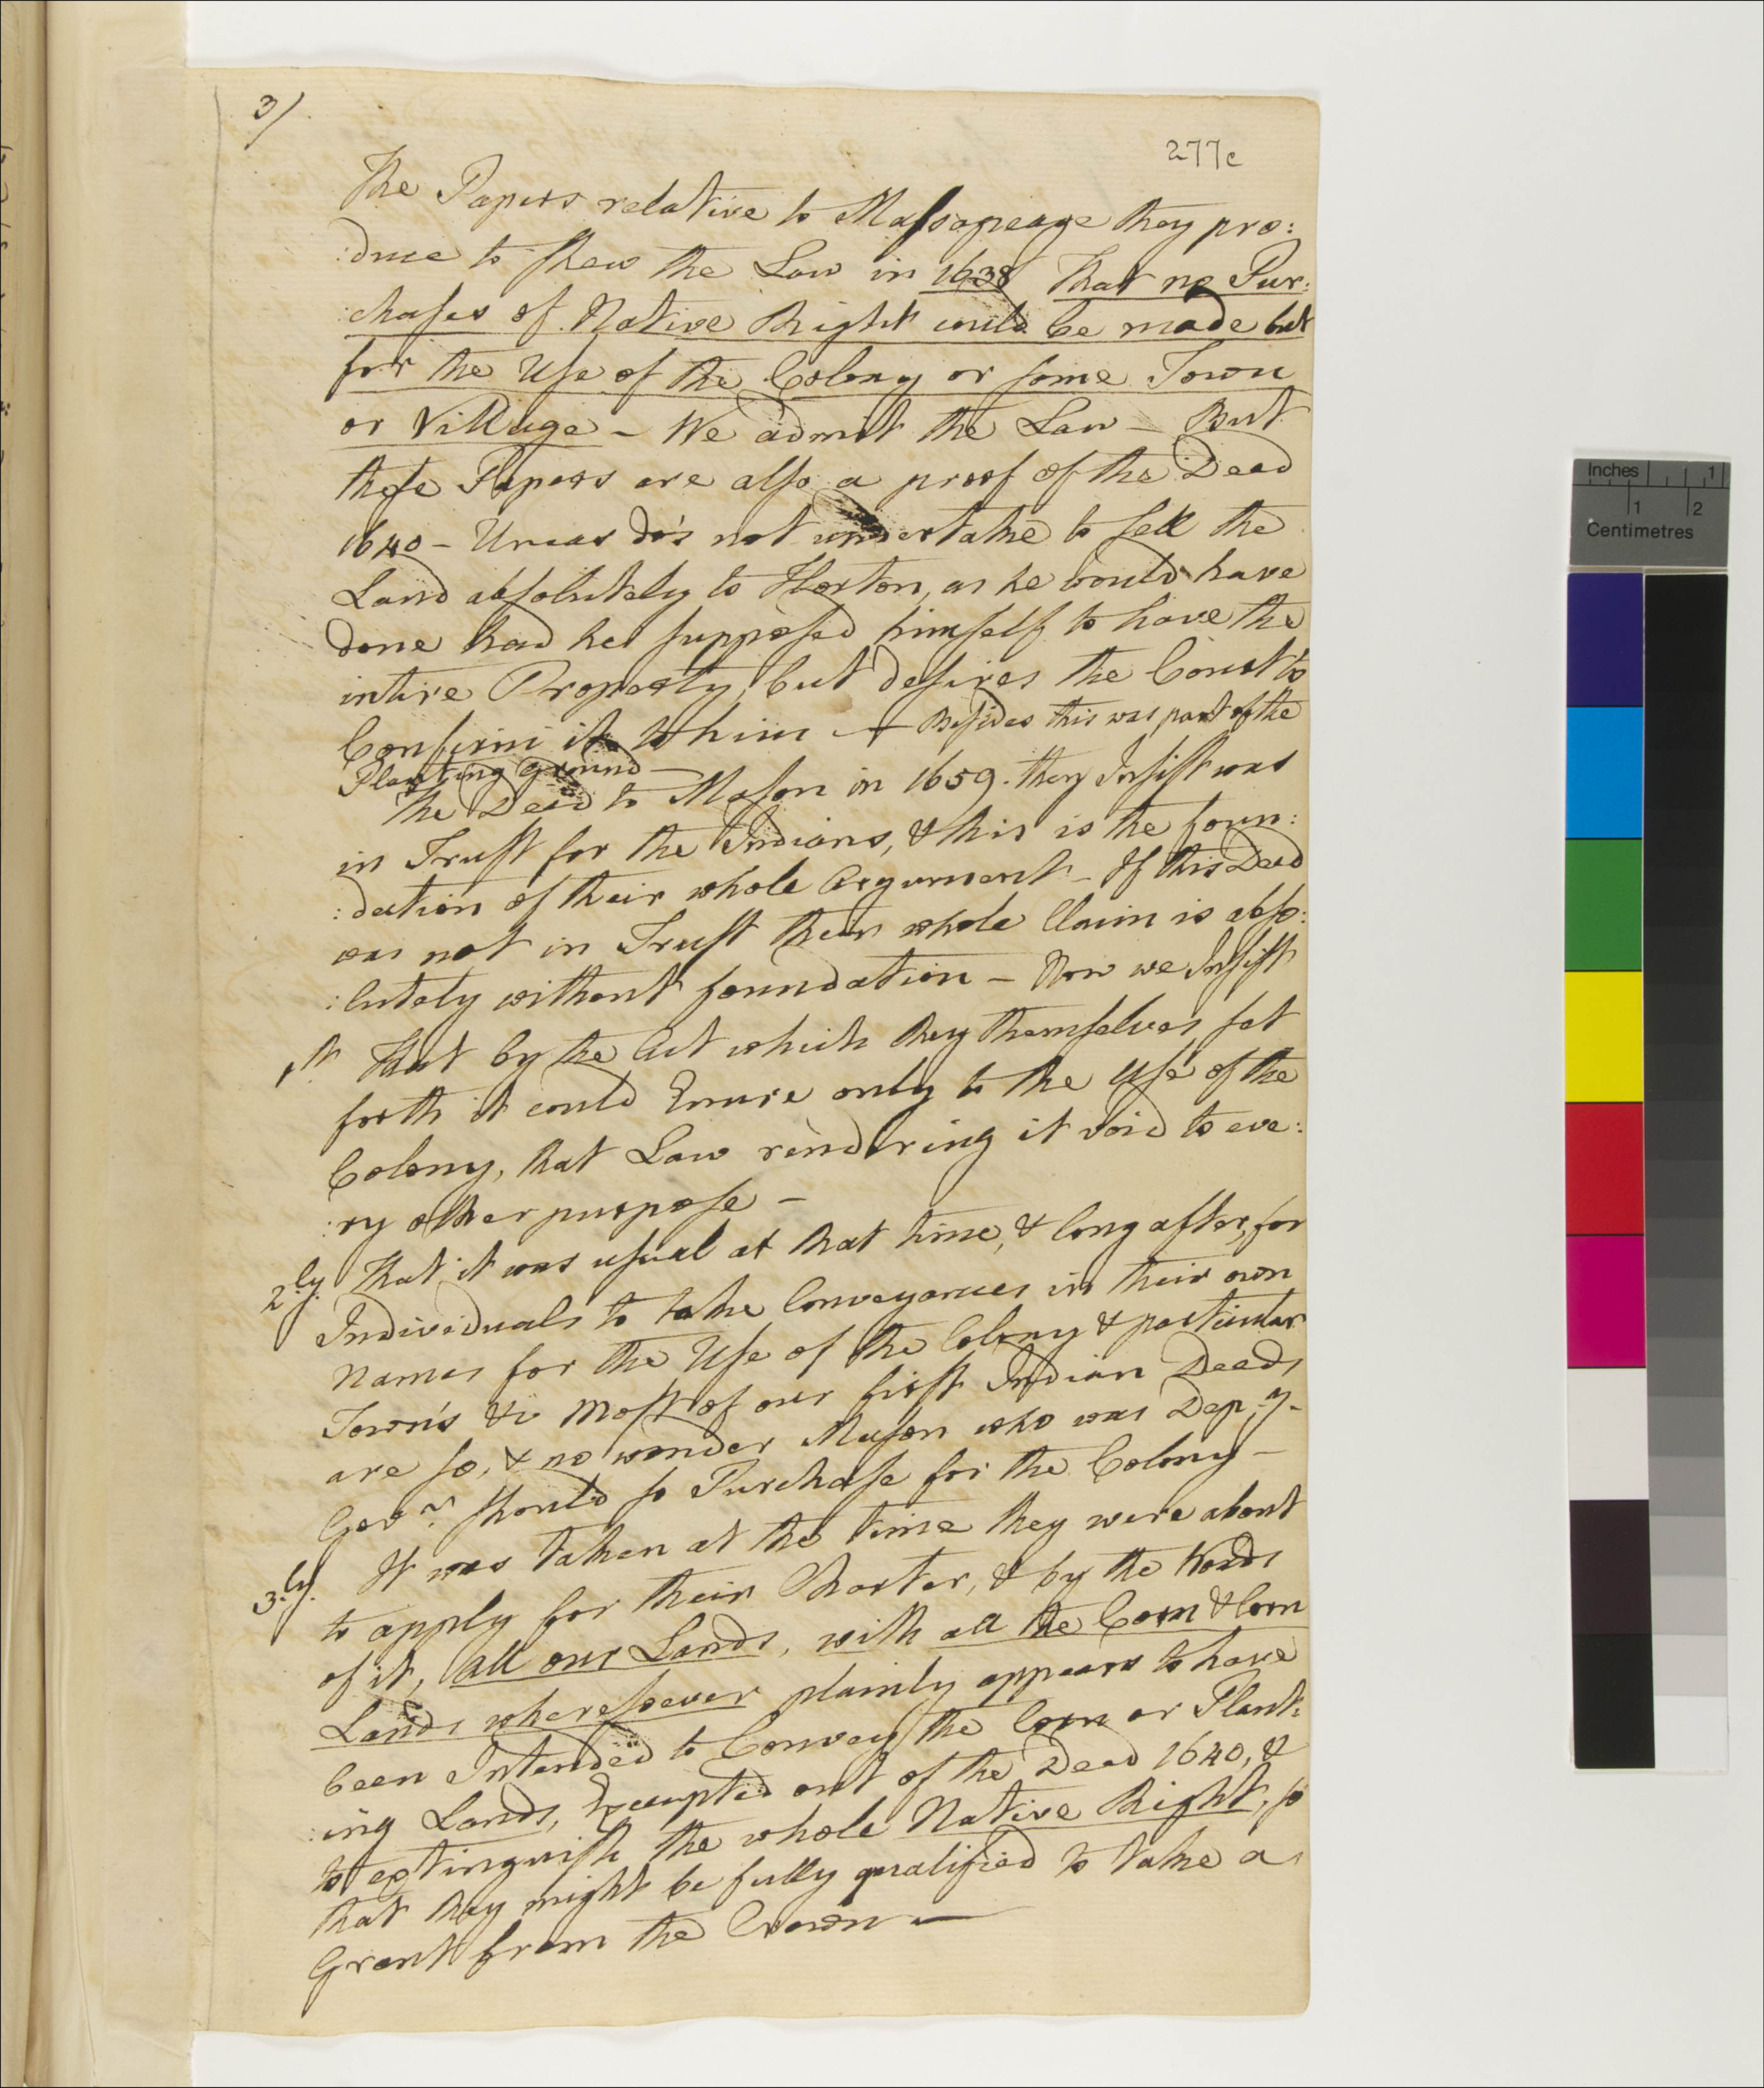 3/
277c
The Papers relative to Massapeage they pro:
:duce to shew the Law in 1638 That no Pur:
:chases of Native Right could be made but
for the Use of the Colony or some Town
or Village – We admit the Law – But
these Papers are also a proof of the Deed
1640 – Uncas do's not undertake to sell the
Land absolutely to Horton, as he would have
done had he supposed himself to have the
intire Property, but desires the Court to
Confirm it to him – Besides this was part of the
Planting ground –
The Deed to Mason in 1659. they Insist was
in Trust for the Indians, & this is the foun:
:dation of their whole Argument – If this Deed
was not in Trust their whole Claim is abso:
:lutely without foundation – Now we Insist
1st. That by the Act which they themselves set
forth it could Enure only to the Use of the
Colony, that Law rendering it void to eve:
:ry other purpose –
2.ly. That it was usual at that time, & long after, for
Individuals to take Conveyances in their own
Names for the Use of the Colony & particular
Town's &c most of our first Indian Deeds
are so, & no wonder Mason who was Dep.y.
Gov.r should so Purchase for the Colony –
3.ly. It was taken at the time they were about
to apply for their Charter, & by the Words
of it, all our Lands, with all the Corn & Corn
Lands wheresoever plainly appears to have
been Intended to Convey the Corn or Plant:
:ing Lands, Excepted out of the Deed 1640, &
to extinguish the whole Native Right, so
that they might be fully qualified to take a
Grant from the Crown –
Inches 1
1 2
Centimetres